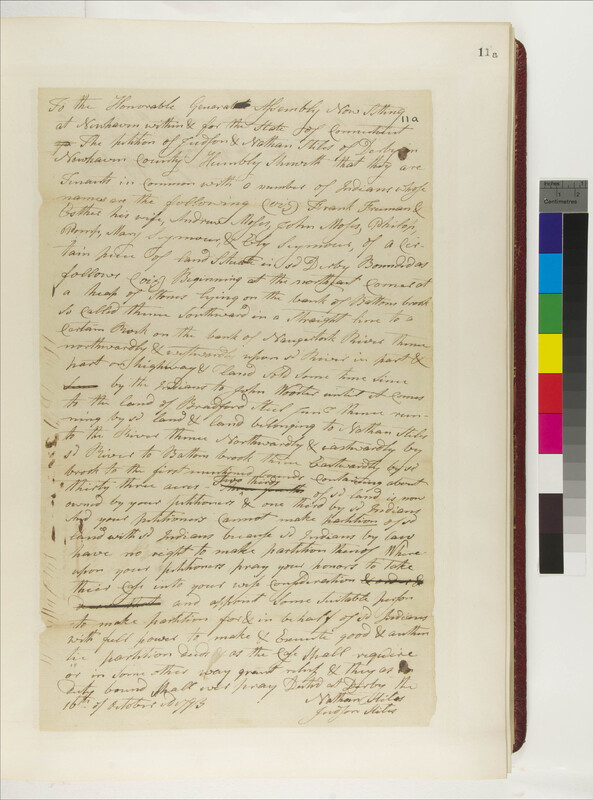 11a
To the Honorable General Assembly Now Sitting
11a
at Newhaven within & for the State of Connecticut
The petition of Judson & Nathan Stiles of Derby in
Newhaven County Humbly Sheweth that they are
Tenants in common with a number of Indians whose
names are the following (viz) Frank Freeman &
Esther his wife, Andrew Moses, John Moses, Philip,
Romp, Mary Seymour, & Seymour, of a Cer-
tain piece of land Situate in sd Derby Bounded as
follows (viz) Beginning at the northeast Corner at
a heap of Stones lying on the bank of Battons brook
So called thence Southward in a Straight line to a
Certain Rock on the bank of River thence
northwardly & westwardly upon sd River in part &
part on highway & land sold some time since
by the Indians to John Wooster until it comes
to the land of Bradford Steel Junr thence run-
ning by sd land & land belonging to Nathan Stiles
to the River thence Northwardly & eastwardly by
sd River to Battons brook thence Eastwardly by sd
brook to the first mentioned bounds Containing about
thirty three acres - Two thirds of sd land is now
owned by your petitioners & one third by sd Indians
And your petitioners cannot make partition of sd
land with sd Indians because sd Indians by law
have no right to make partition thereof Where-
upon your petitioners pray your honors to take
their Case into your wise Consideration
and appoint Some Suitable person
to make partition for & in behalf of sd Indians
with full power to make & Execute good & authen
tic partition deeds as the Case shall require
or in some other way grant relief & they as in
Duty bound Shall ever pray Dated at Derby the
16th of October AD 1793
Nathan Stiles
Judson Stiles
Inches
Centimetres